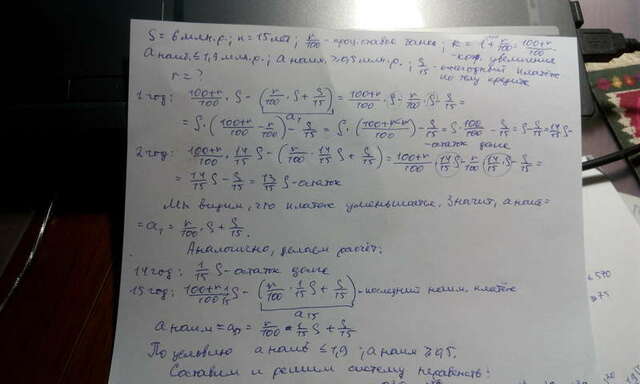 S = 6 млн.р.; n = 15 лет; r/100 - проц. ставка банка; k = 1 + r/100 = (100+r)/100 -
коэф. увеличения
a наиб. ≤ 1,9 млн.р.; a наим. ≥ 0,5 млн.р.; S/15 - ежегодный платёж
по телу кредита
r = ?
1 год: (100+r)/100 · S - (r/100 · S + S/15) = (100+r)/100 · S - r/100 · S - S/15 =
a₁
= S · ((100+r)/100 - r/100) - S/15 = S · ((100+r-r)/100) - S/15 = S · 100/100 - S/15 = S - S/15 = 14/15 S -
- остаток долга
2 год: (100+r)/100 · 14/15 S - (r/100 · 14/15 S + S/15) = (100+r)/100 · 14/15 S - r/100 · 14/15 · S - S/15 =
= 14/15 S - S/15 = 13/15 S - остаток
Мы видим, что платеж уменьшается. Значит, a наиб =
= a₁ = r/100 · S + S/15.
Аналогично, делаем расчёт:
14 год: 1/15 S - остаток долга
15 год: (100+r)/100 · 1/15 S - (r/100 · 1/15 S + S/15) - последний наим. платёж
a₁₅
a наим = a₁₅ = r/100 · 1/15 S + S/15
По условию a наиб ≤ 1,9 ; a наим ≥ 0,5.
Составим и решим систему неравенств: